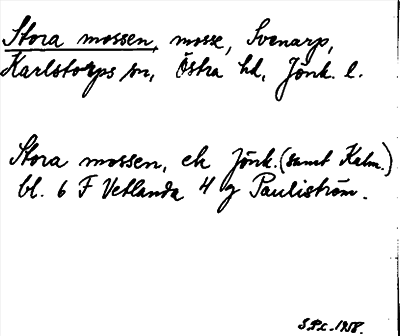 Stora mossen, mosse, Svenarp,
Karlstorps sn, Östra hd, Jönk. l.
Stora mossen, ek Jönk. (samt Kalm.)
bl. 6 F Vetlanda 4 g Pauliström.
1958.